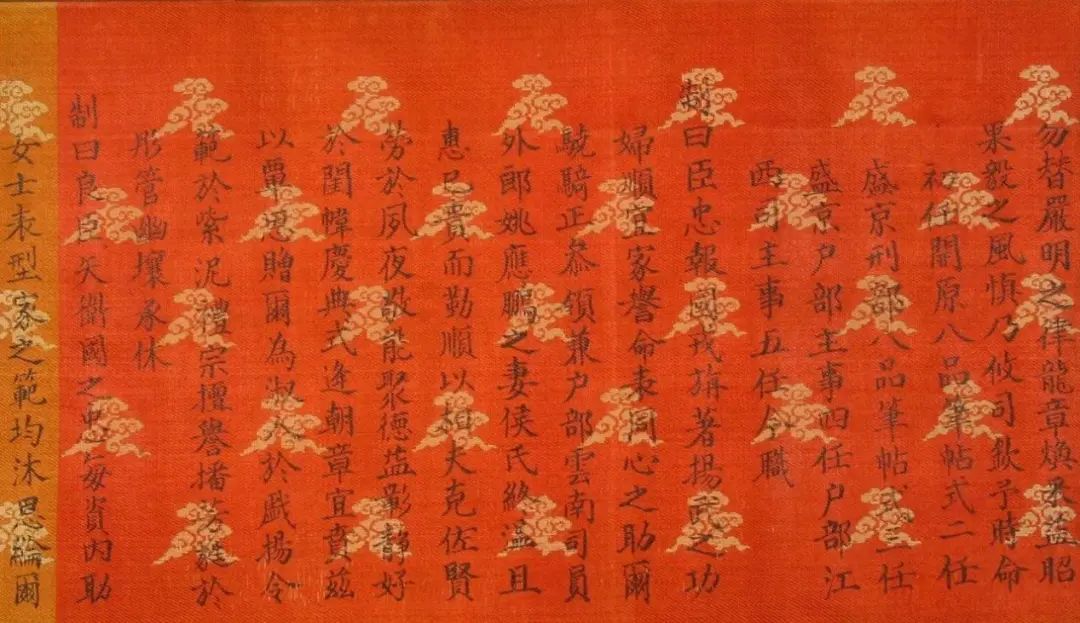 勿替嚴明之律龍章煥采益昭
果毅之風慎乃攸司欽予時命
初任開原八品筆帖式二任
盛京刑部八品筆帖式三任
盛京户部主事四任户部江
西司主事五任今職
制曰臣忠報國戎旃著揚武之功
婦順宜家譽命表同心之助爾
驍騎正叅領兼户部雲南司員
外郎姚應鵬之妻侯氏終温且
惠已貴而勤順以相夫克佐賢
勞於夙夜敬能聚德益彰静好
於閨幃慶典式逢朝章宜賁兹
以覃恩贈爾為淑人於戲揚令
範於紫泥禮宗擅譽播芳蕤於
彤管幽壤承休
制曰良臣矢衛國之忠每資内助
女士表型家之範均沐恩綸爾